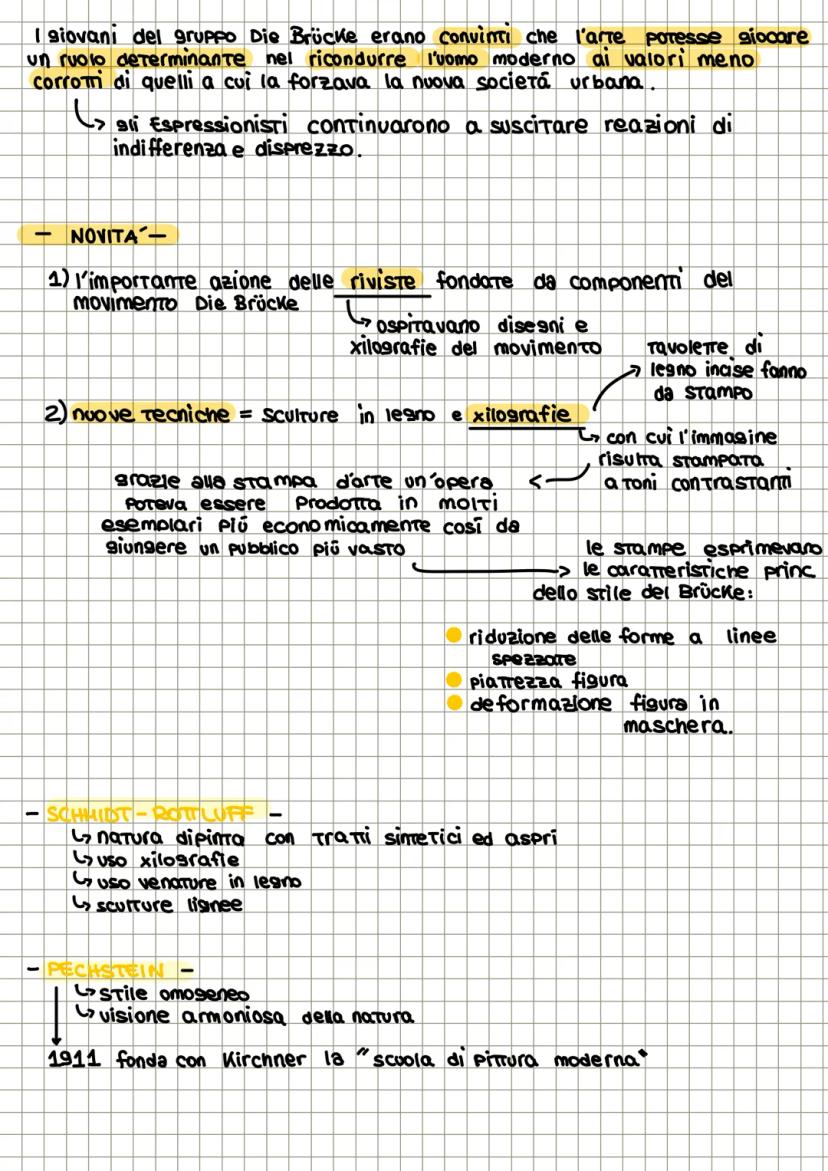 I giovani del gruppo Die Brücke erano convinti che l'arte potesse giocare
un ruolo determinante nel ricondurre l'uomo moderno ai valori meno
corrotti di quelli a cui la forzava la nuova società urbana.
↳ gli Espressionisti continuarono a suscitare reazioni di
indifferenza e disprezzo.
- NOVITA' -
1) l'importante azione delle riviste fondate da componenti del
movimento Die Brücke
↳ ospitavano disegni e
xilografie del movimento
tavolette di
legno incise fanno
da stampo
2) nuove tecniche = sculture in legno e xilografie
↳ con cui l'immagine
risulta stampata
a toni contrastanti
grazie alla stampa d'arte un'opera
poteva essere prodotta in molti
esemplari più economicamente così da
giungere un pubblico più vasto
le stampe esprimevano
le caratteristiche princ
dello stile del Brücke:
● riduzione delle forme a linee
spezzate
● piattezza figura
● deformazione figura in
maschera.
- SCHMIDT-ROTTLUFF -
↳ natura dipinta con tratti sintetici ed aspri
↳ uso xilografie
↳ uso venature in legno
↳ sculture lignee
- PECHSTEIN -
↳ stile omogeneo
↳ visione armoniosa della natura
1911 fonda con Kirchner la "scuola di pittura moderna"